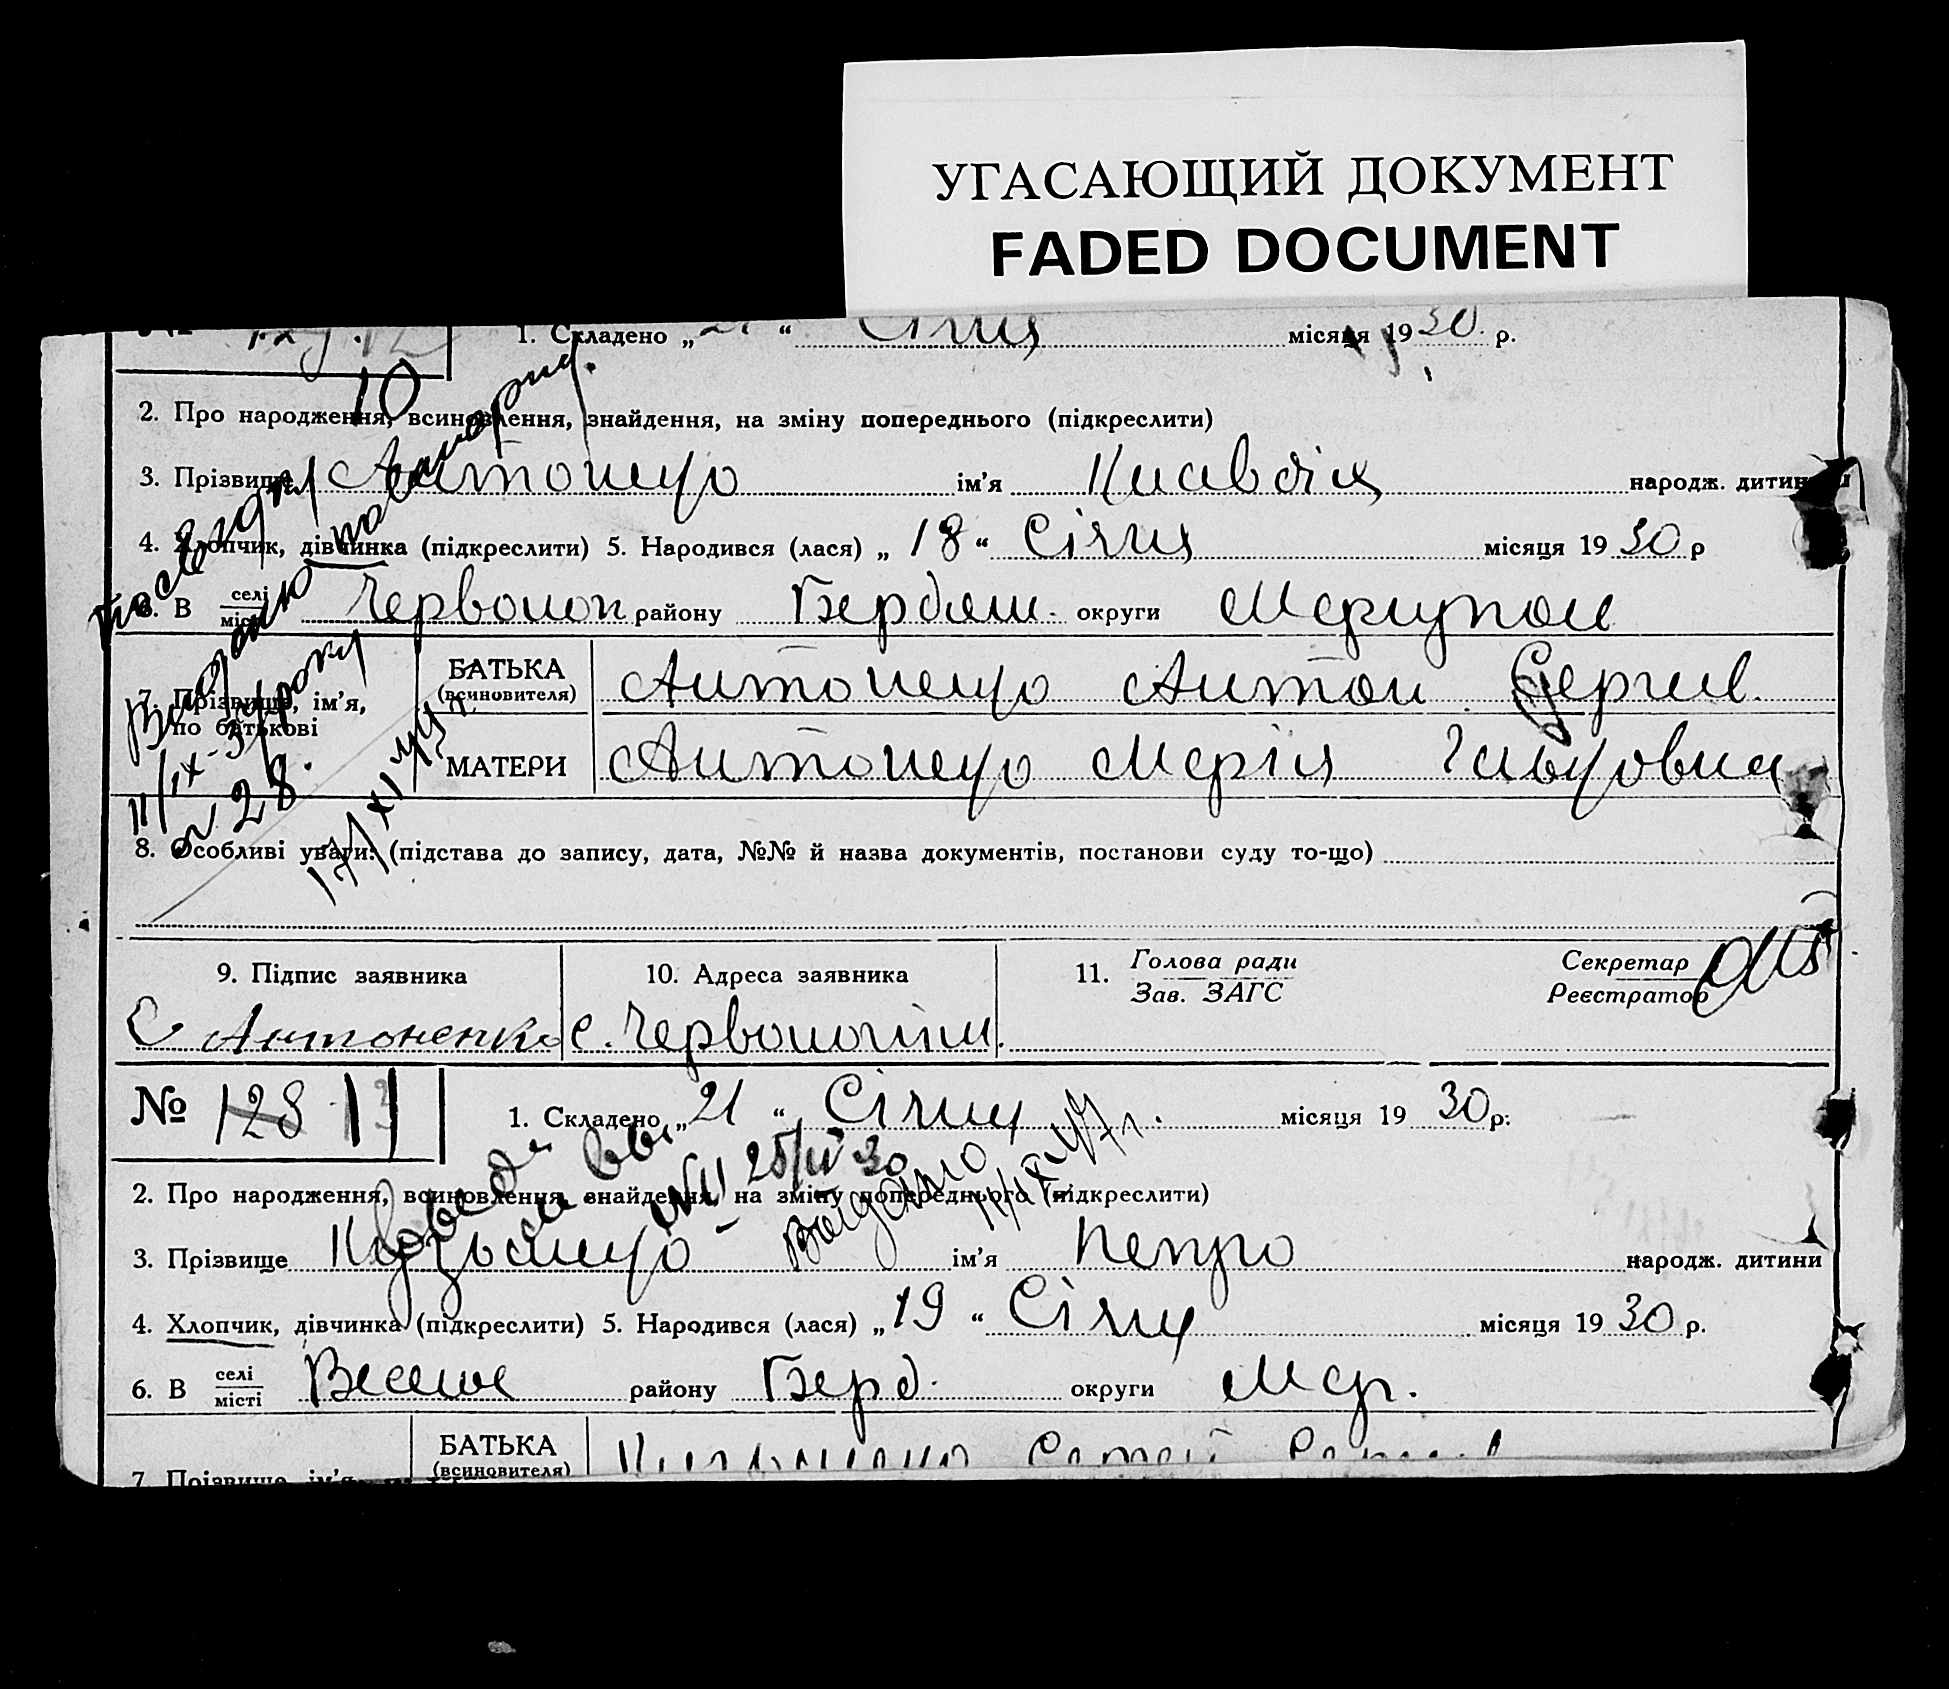 УГАСАЮЩИЙ ДОКУМЕНТ
FADED DOCUMENT
1. Складено „21“ Січня місяця 1930 р.
10
2. Про народження, всиновлення, знайдення, на зміну попереднього (підкреслити)
3. Прізвище Антоненко ім’я Клавдія народж. дитини
4. Хлопчик, дівчинка (підкреслити) 5. Народився (лася) „18“ Січня місяця 1930 р
6. В селі місті Червоноп району Бердян. округи Маріупол
7. Прізвище, ім’я, по батькові
БАТЬКА (всиновителя) Антоненко Антон Сергиев.
МАТЕРИ Антоненко Марія
Видано повторну
11/IX-34 року
№ 28.
17/XI 44 г.
8. Особливі уваги: (підстава до запису, дата, №№ й назва документів, постанови суду то-що)
9. Підпис заявника
10. Адреса заявника
11. Голова ради Зав. ЗАГС
Секретар Реєстратор
С Антоненко
с.
№ 128 13 11
1. Складено „21“ Січня місяця 1930 р.
25/IV 30
Видано 11/IX-47 г.
2. Про народження, всиновлення, знайдення, на зміну попереднього (підкреслити)
3. Прізвище Кузьменко ім’я Петро народж. дитини
4. Хлопчик, дівчинка (підкреслити) 5. Народився (лася) „19“ Січня місяця 1930 р.
6. В селі місті Веселое району Берд. округи Мар.
7. Прізвище ім’я
БАТЬКА (всиновителя)